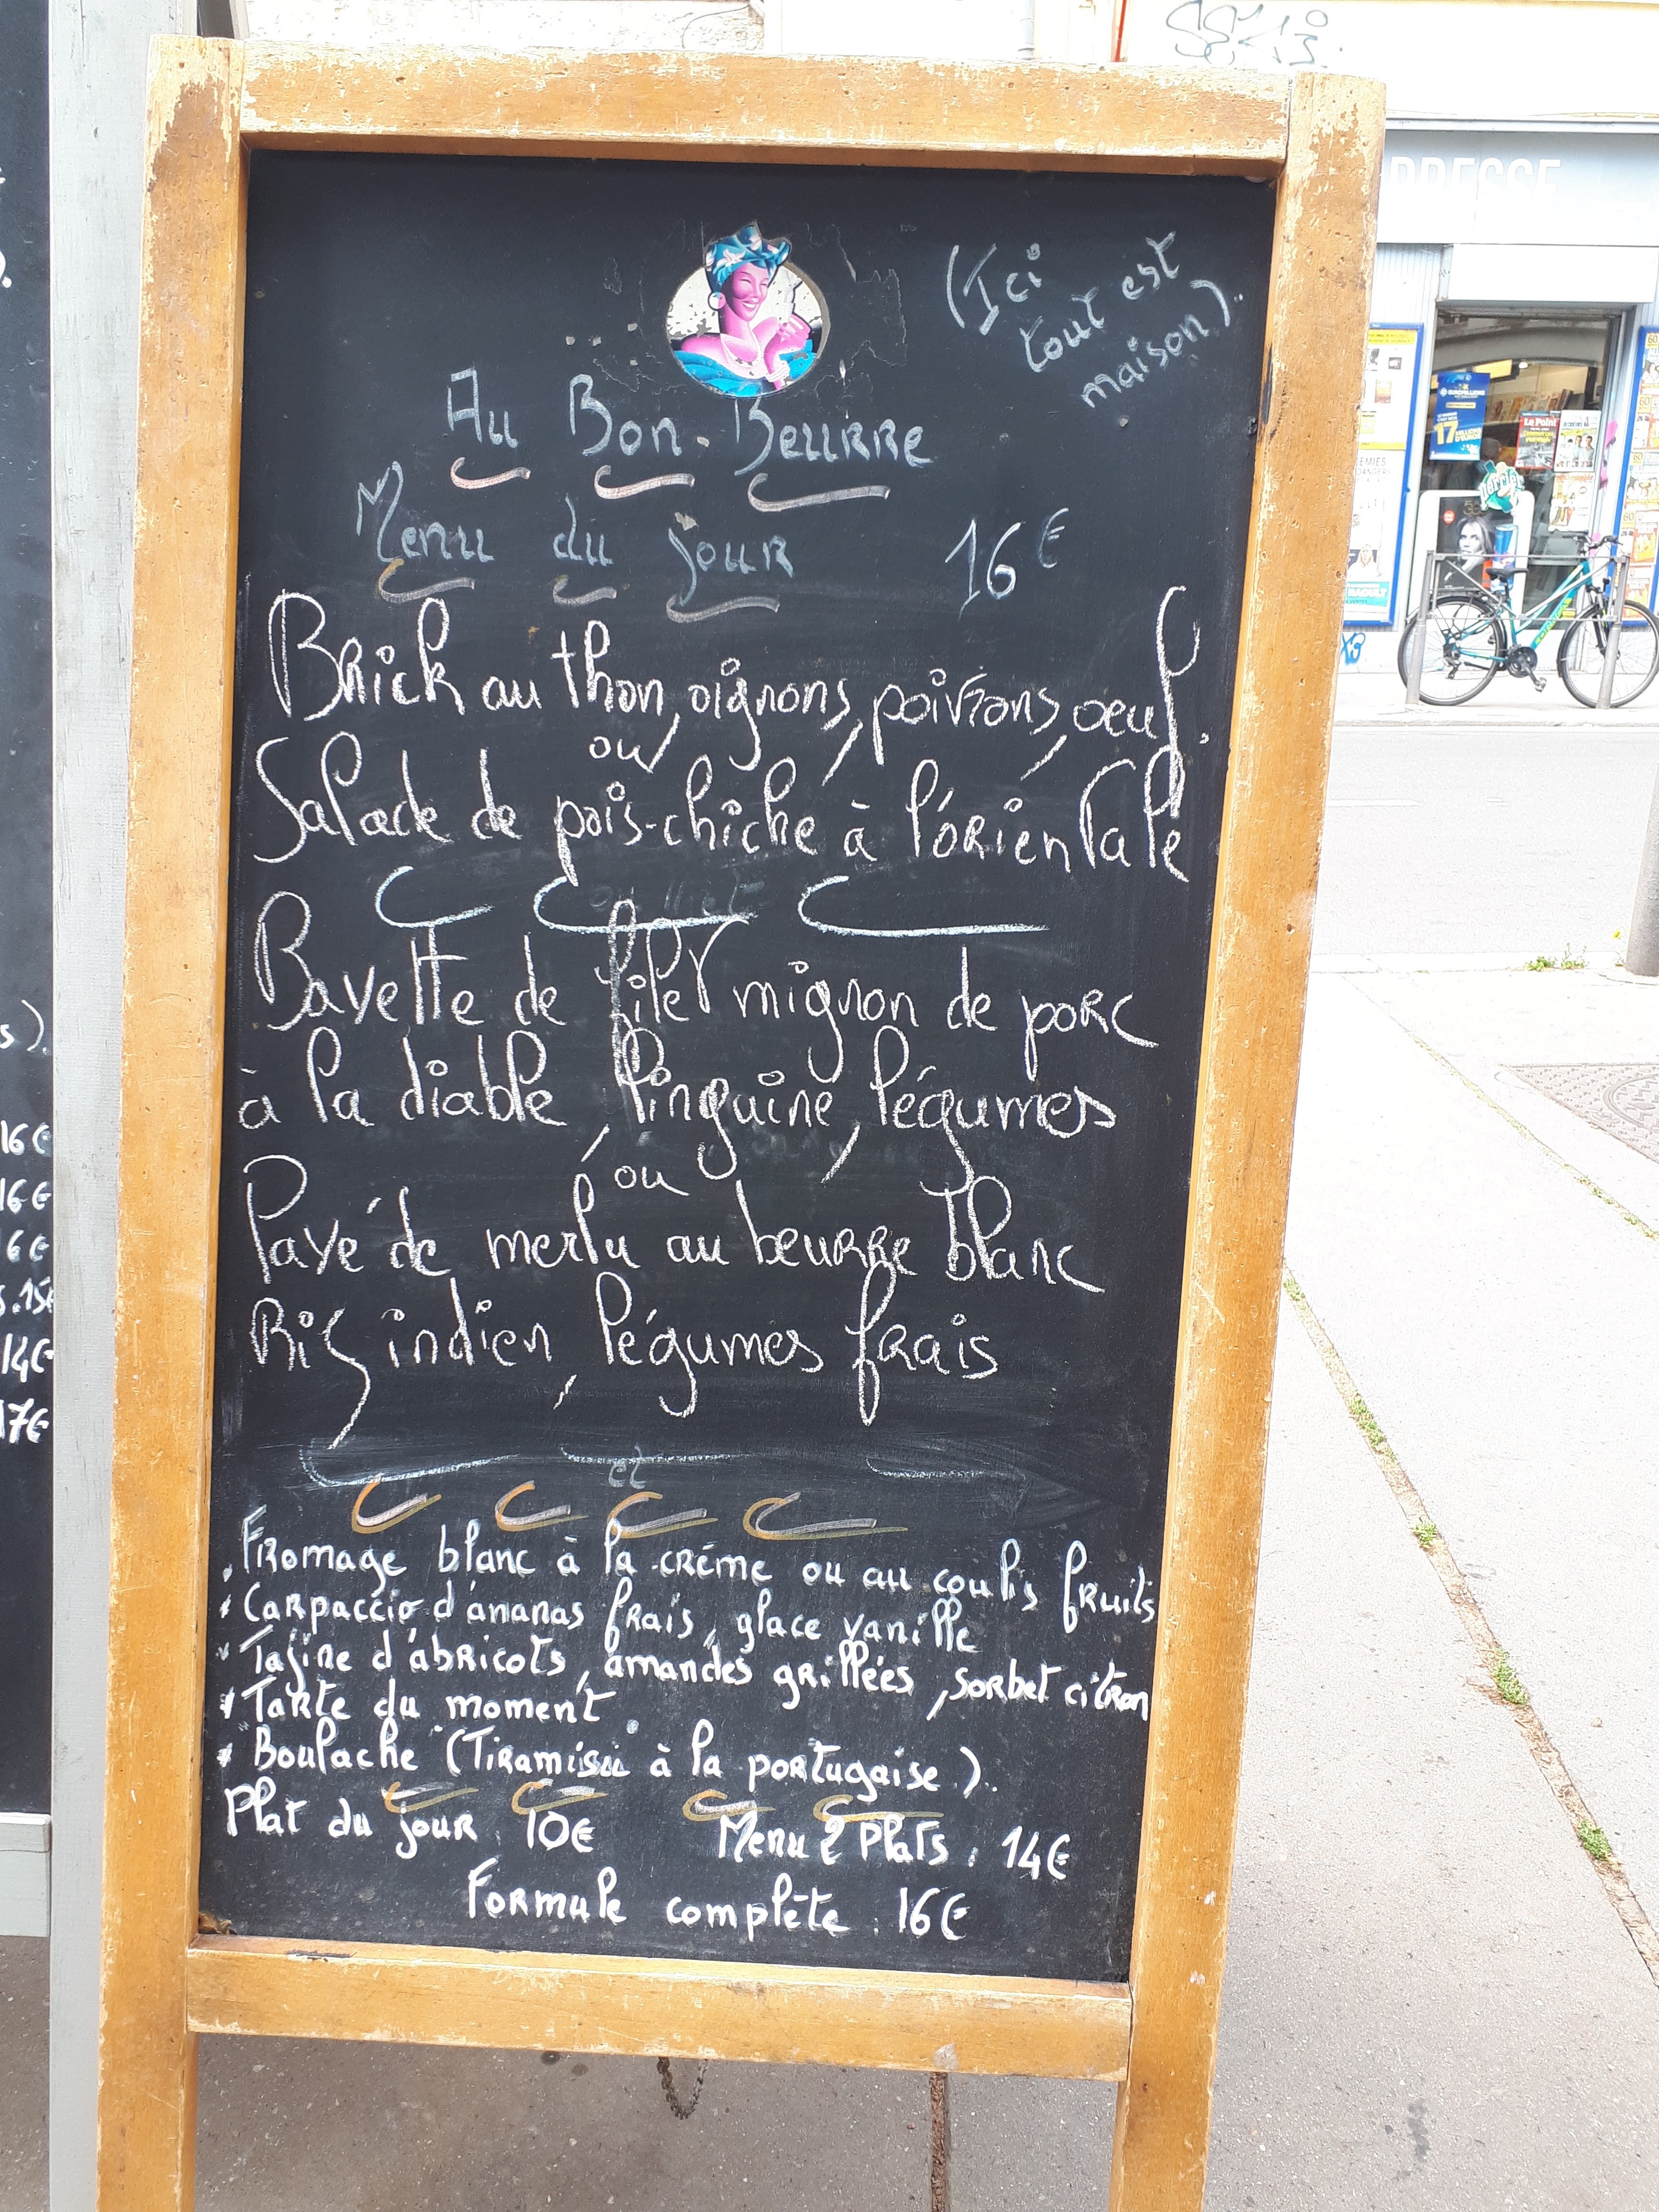 (Ici
tout est
maison).
Au Bon Beurre
Menu du jour 16€
Brick au thon, oignons, poivrons, oeuf.
ou
Salade de pois-chiche à l'orientale
Bavette de filet mignon de porc
à la diable, linguine, légumes
ou
Pavé de merlu au beurre blanc
Riz indien, légumes frais
et
. Fromage blanc à la crème ou au coulis fruits
* Carpaccio d'ananas frais, glace vanille
* Tajine d'abricots, amandes grillées, sorbet citron
* Tarte du moment
* Boulache (Tiramisu à la portugaise).
Plat du jour : 10€ Menu 2 Plats : 14€
Formule complète : 16€
s).
16€
16€
6€
s.15€
14€
17€
PRESSE
EUROMILLIONS
17 MILLIONS
Le Point
perrier
RAOULT